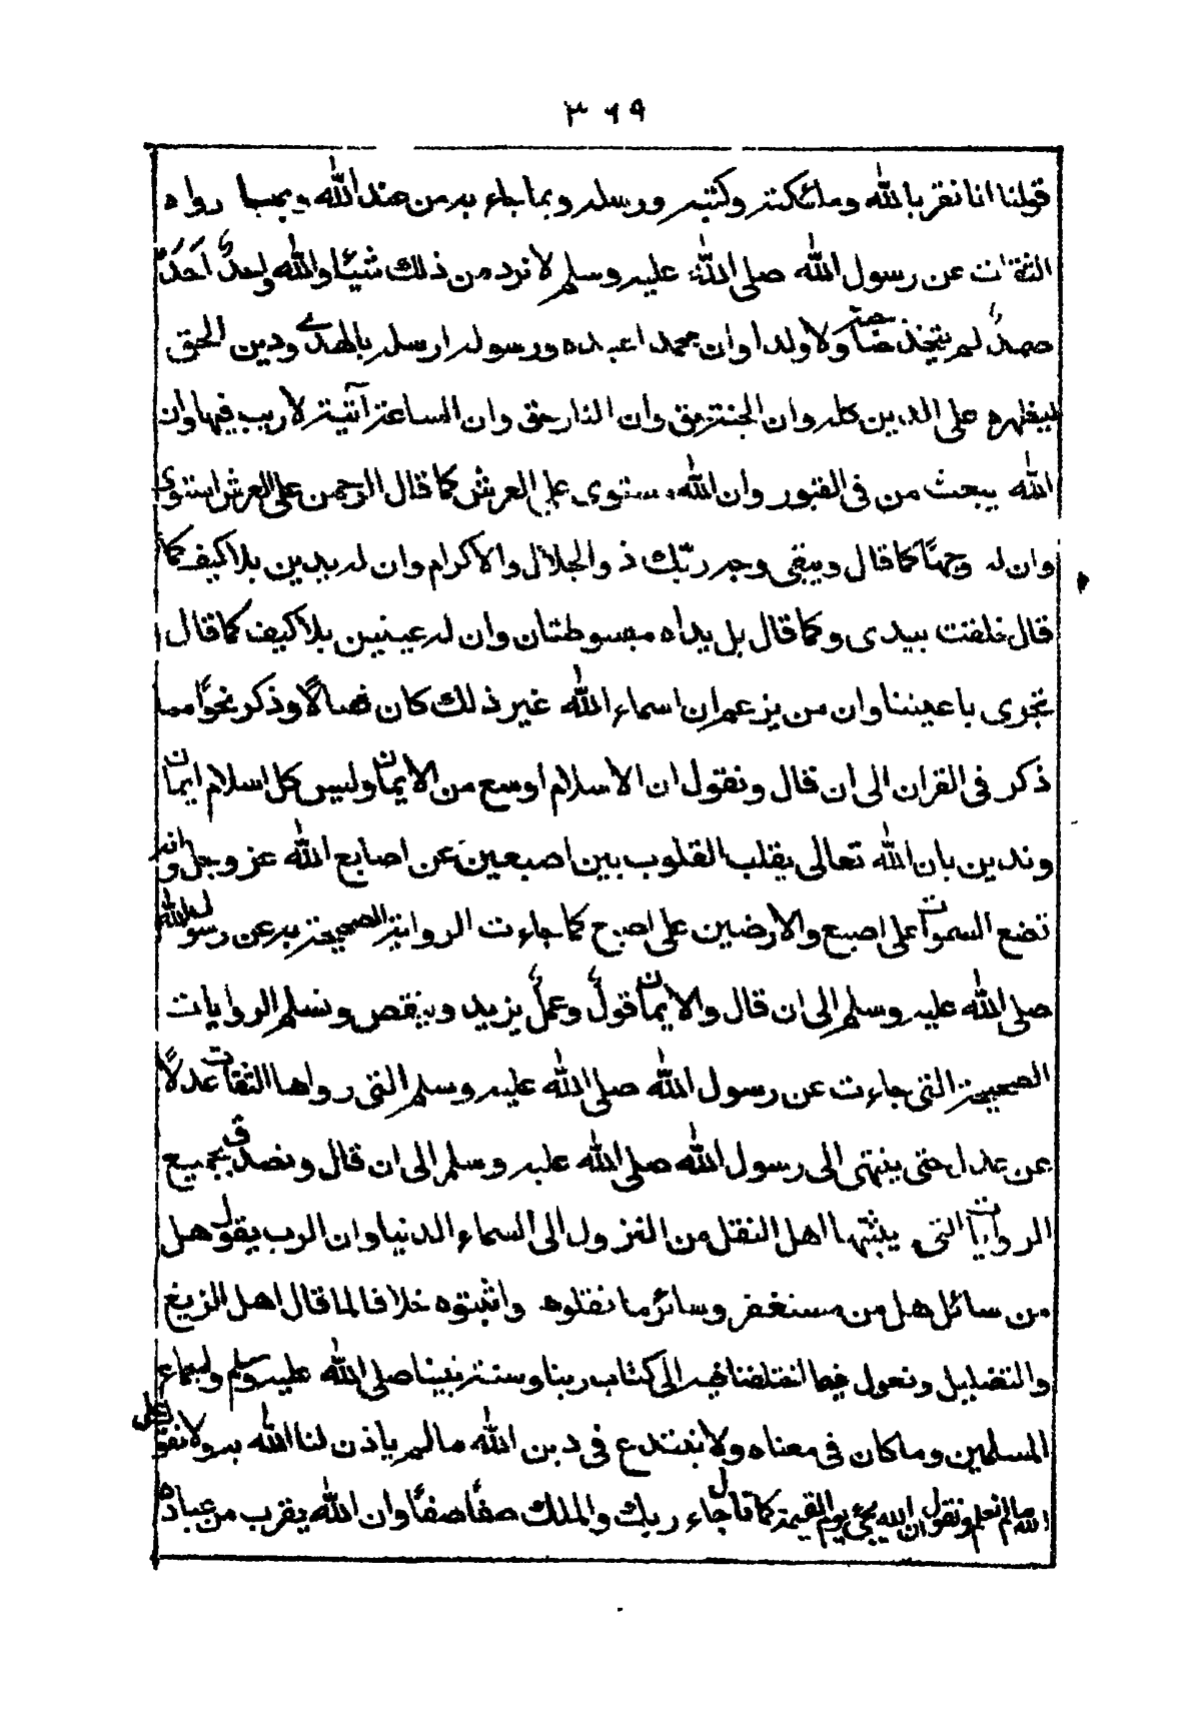 ٣٦٩
قولنا انا نقر بالله وملئكته وكتبه ورسله وبما جاء به من عند الله وبما رواه
الثقات عن رسول الله صلى الله عليه وسلم لا نرد من ذلك شيئا والله واحدٌ اَحَدٌ
صمدٌ لم يتخذ صاحبة ولا ولدا وان محمدا عبده ورسوله ارسله بالهدى ودين الحق
ليظهره على الدين كله وان الجنة حق وان النار حق وان الساعة آتية لا ريب فيها وان
الله يبعث من فى القبور وان الله مستوى على العرش كما قال الرحمن على العرش استوى
وان له وجهًا كما قال ويبقى وجه ربّك ذو الجلال والاكرام وان له يدين بلا كيف كما
قال خلقت بيدى وكما قال بل يداه مبسوطتان وان له عينين بلا كيف كما قال
تجرى باعيننا وان من يزعم ان اسماء الله غير ذلك كان ضالًا وذكر نحوًا مما
ذكر فى القران الى ان قال ونقول ان الاسلام اوسع من الايمان وليس كل اسلام ايمان
وندين بان الله تعالى يقلب القلوب بين اصبعين عن اصابع الله عز وجل وانه
تضع السموات على اصبع والارضين على اصبع كما جاءت الرواية الصحيحة به عن رسول الله
صلى الله عليه وسلم الى ان قال والايمان قولٌ وعملٌ يزيد وينقص ونسلم الروايات
الصحيحة التى جاءت عن رسول الله صلى الله عليه وسلم التى رواها الثقات عدلاً
عن عدل حتى ينتهى الى رسول الله صلى الله عليه وسلم الى ان قال ونصدق بجميع
الروايات التى يثبتها اهل النقل من النزول الى السماء الدنيا وان الرب يقول هل
من سائل هل من مستغفر وسائر ما نقلوه واثبتوه خلافا لما قال اهل الزيغ
والتضليل ونعول فيما اختلفنا فيه الى كتاب ربنا وسنة نبينا صلى الله عليه وسلم واجماع
المسلمين وما كان فى معناه ولا نبتدع فى دين الله ما لم ياذن لنا الله به ولا نقول على
الله ما لم نعلم ونقول ان الله يجئ يوم القيمة كما قال جاء ربك والملك صفًا صفًا وان الله يقرب من عباده